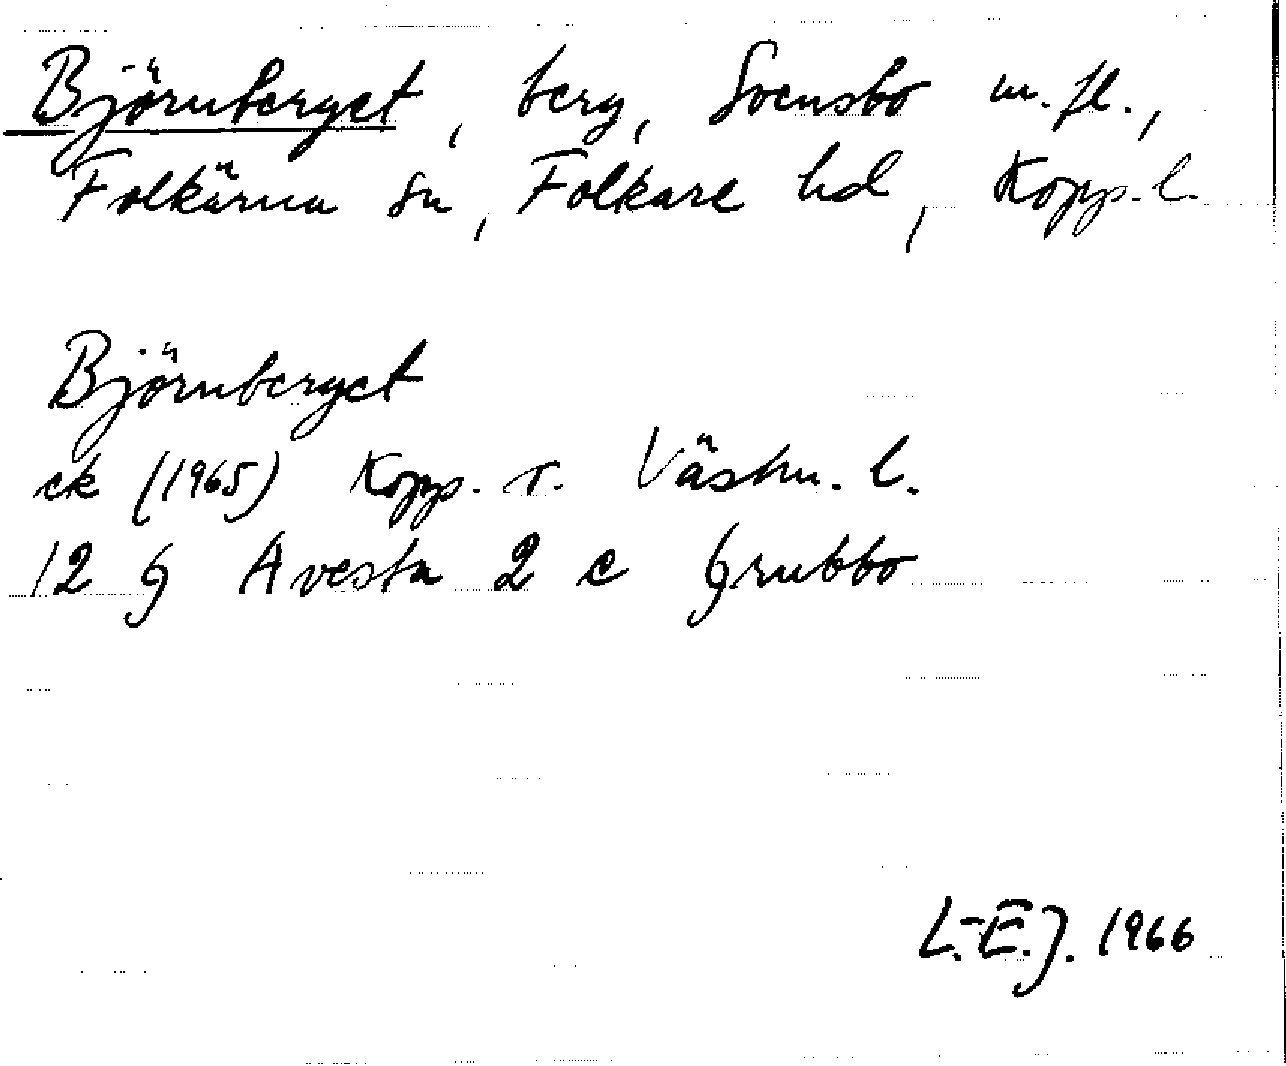 Björnberget, berg, Svensbo m.fl.,
Folkärna sn, Folkare hd, Kopp. l.
Björnberget
ek (1965) Kopp. o. Västm. l.
12 G Avesta 2 c Grubbo
L.-E.J. 1966